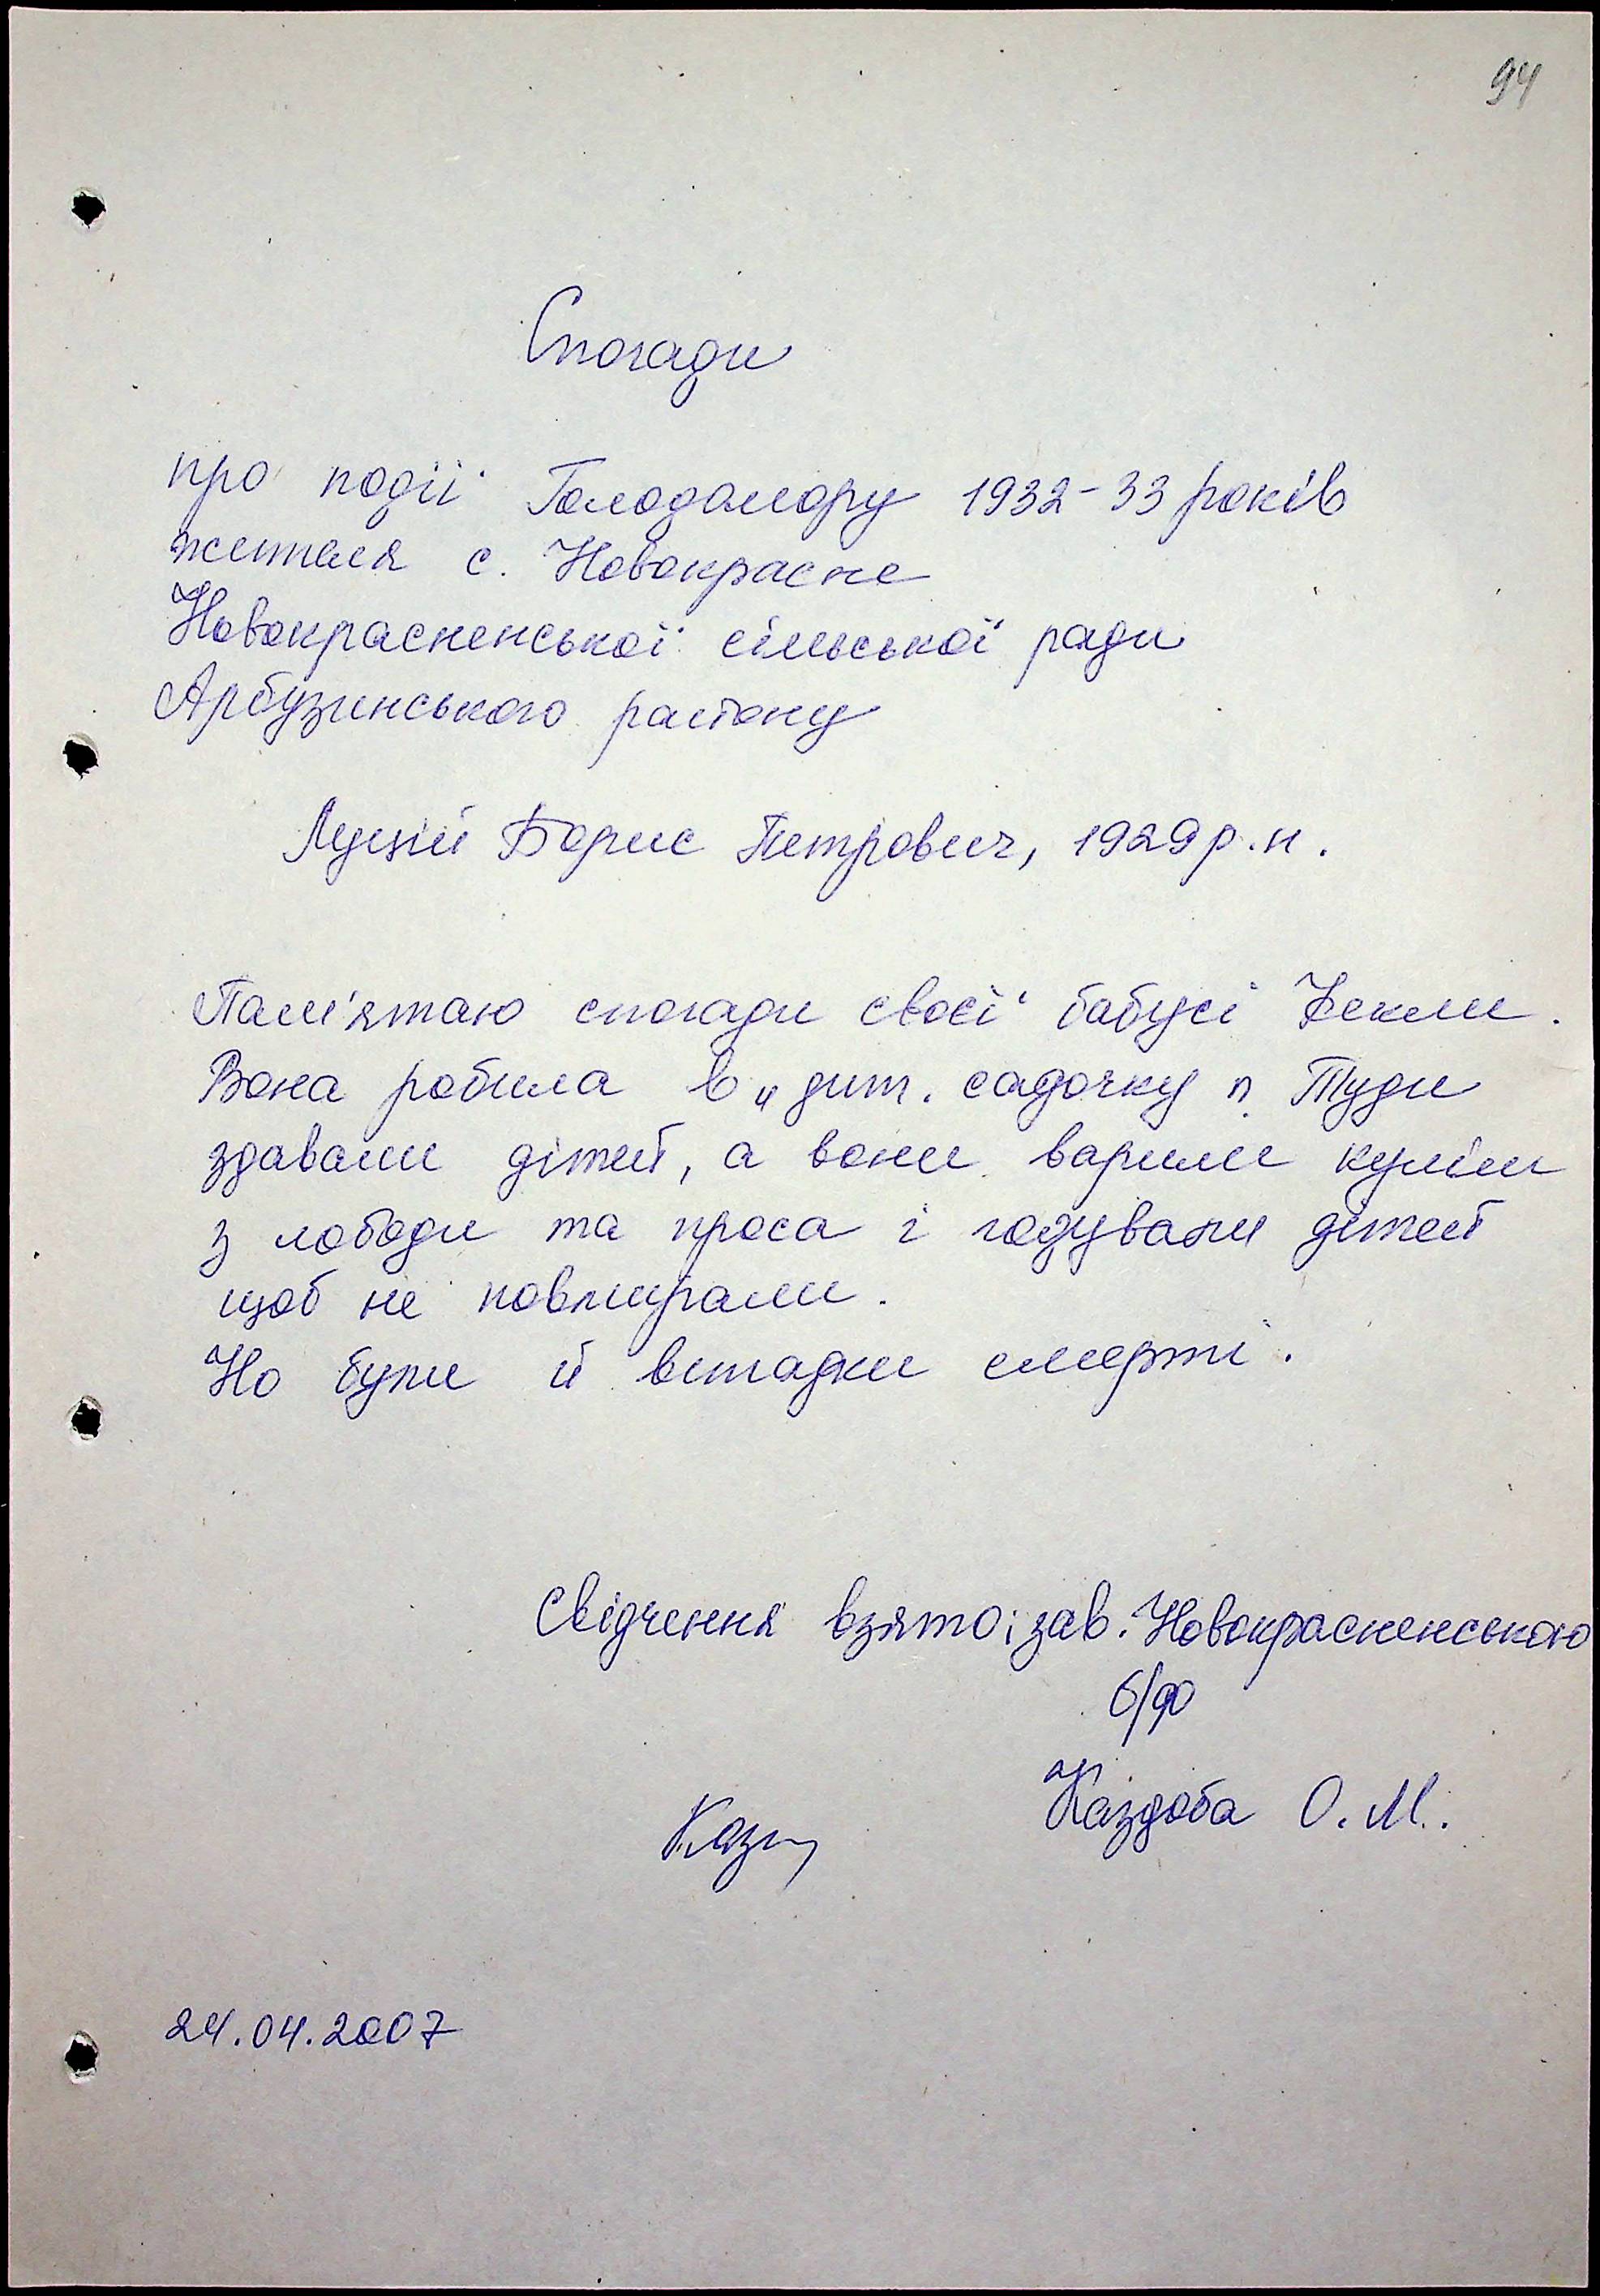 94
Спогади
про події Голодомору 1932-33 років
жителя с. Новокрасне
Новокрасненської сільської ради
Арбузинського району
Луцій Борис Петрович, 1929 р.н.
Пам'ятаю спогади своєї бабусі Фекли.
Вона робила в „дит. садочку". Туди
здавали дітей, а вони варили куліш
з лободи та проса і годували дітей
щоб не повмирали.
Но були й випадки смерті.
Свідчення взято: зав. Новокрасненською
б/ф
Каздоба О.М.
24.04.2007